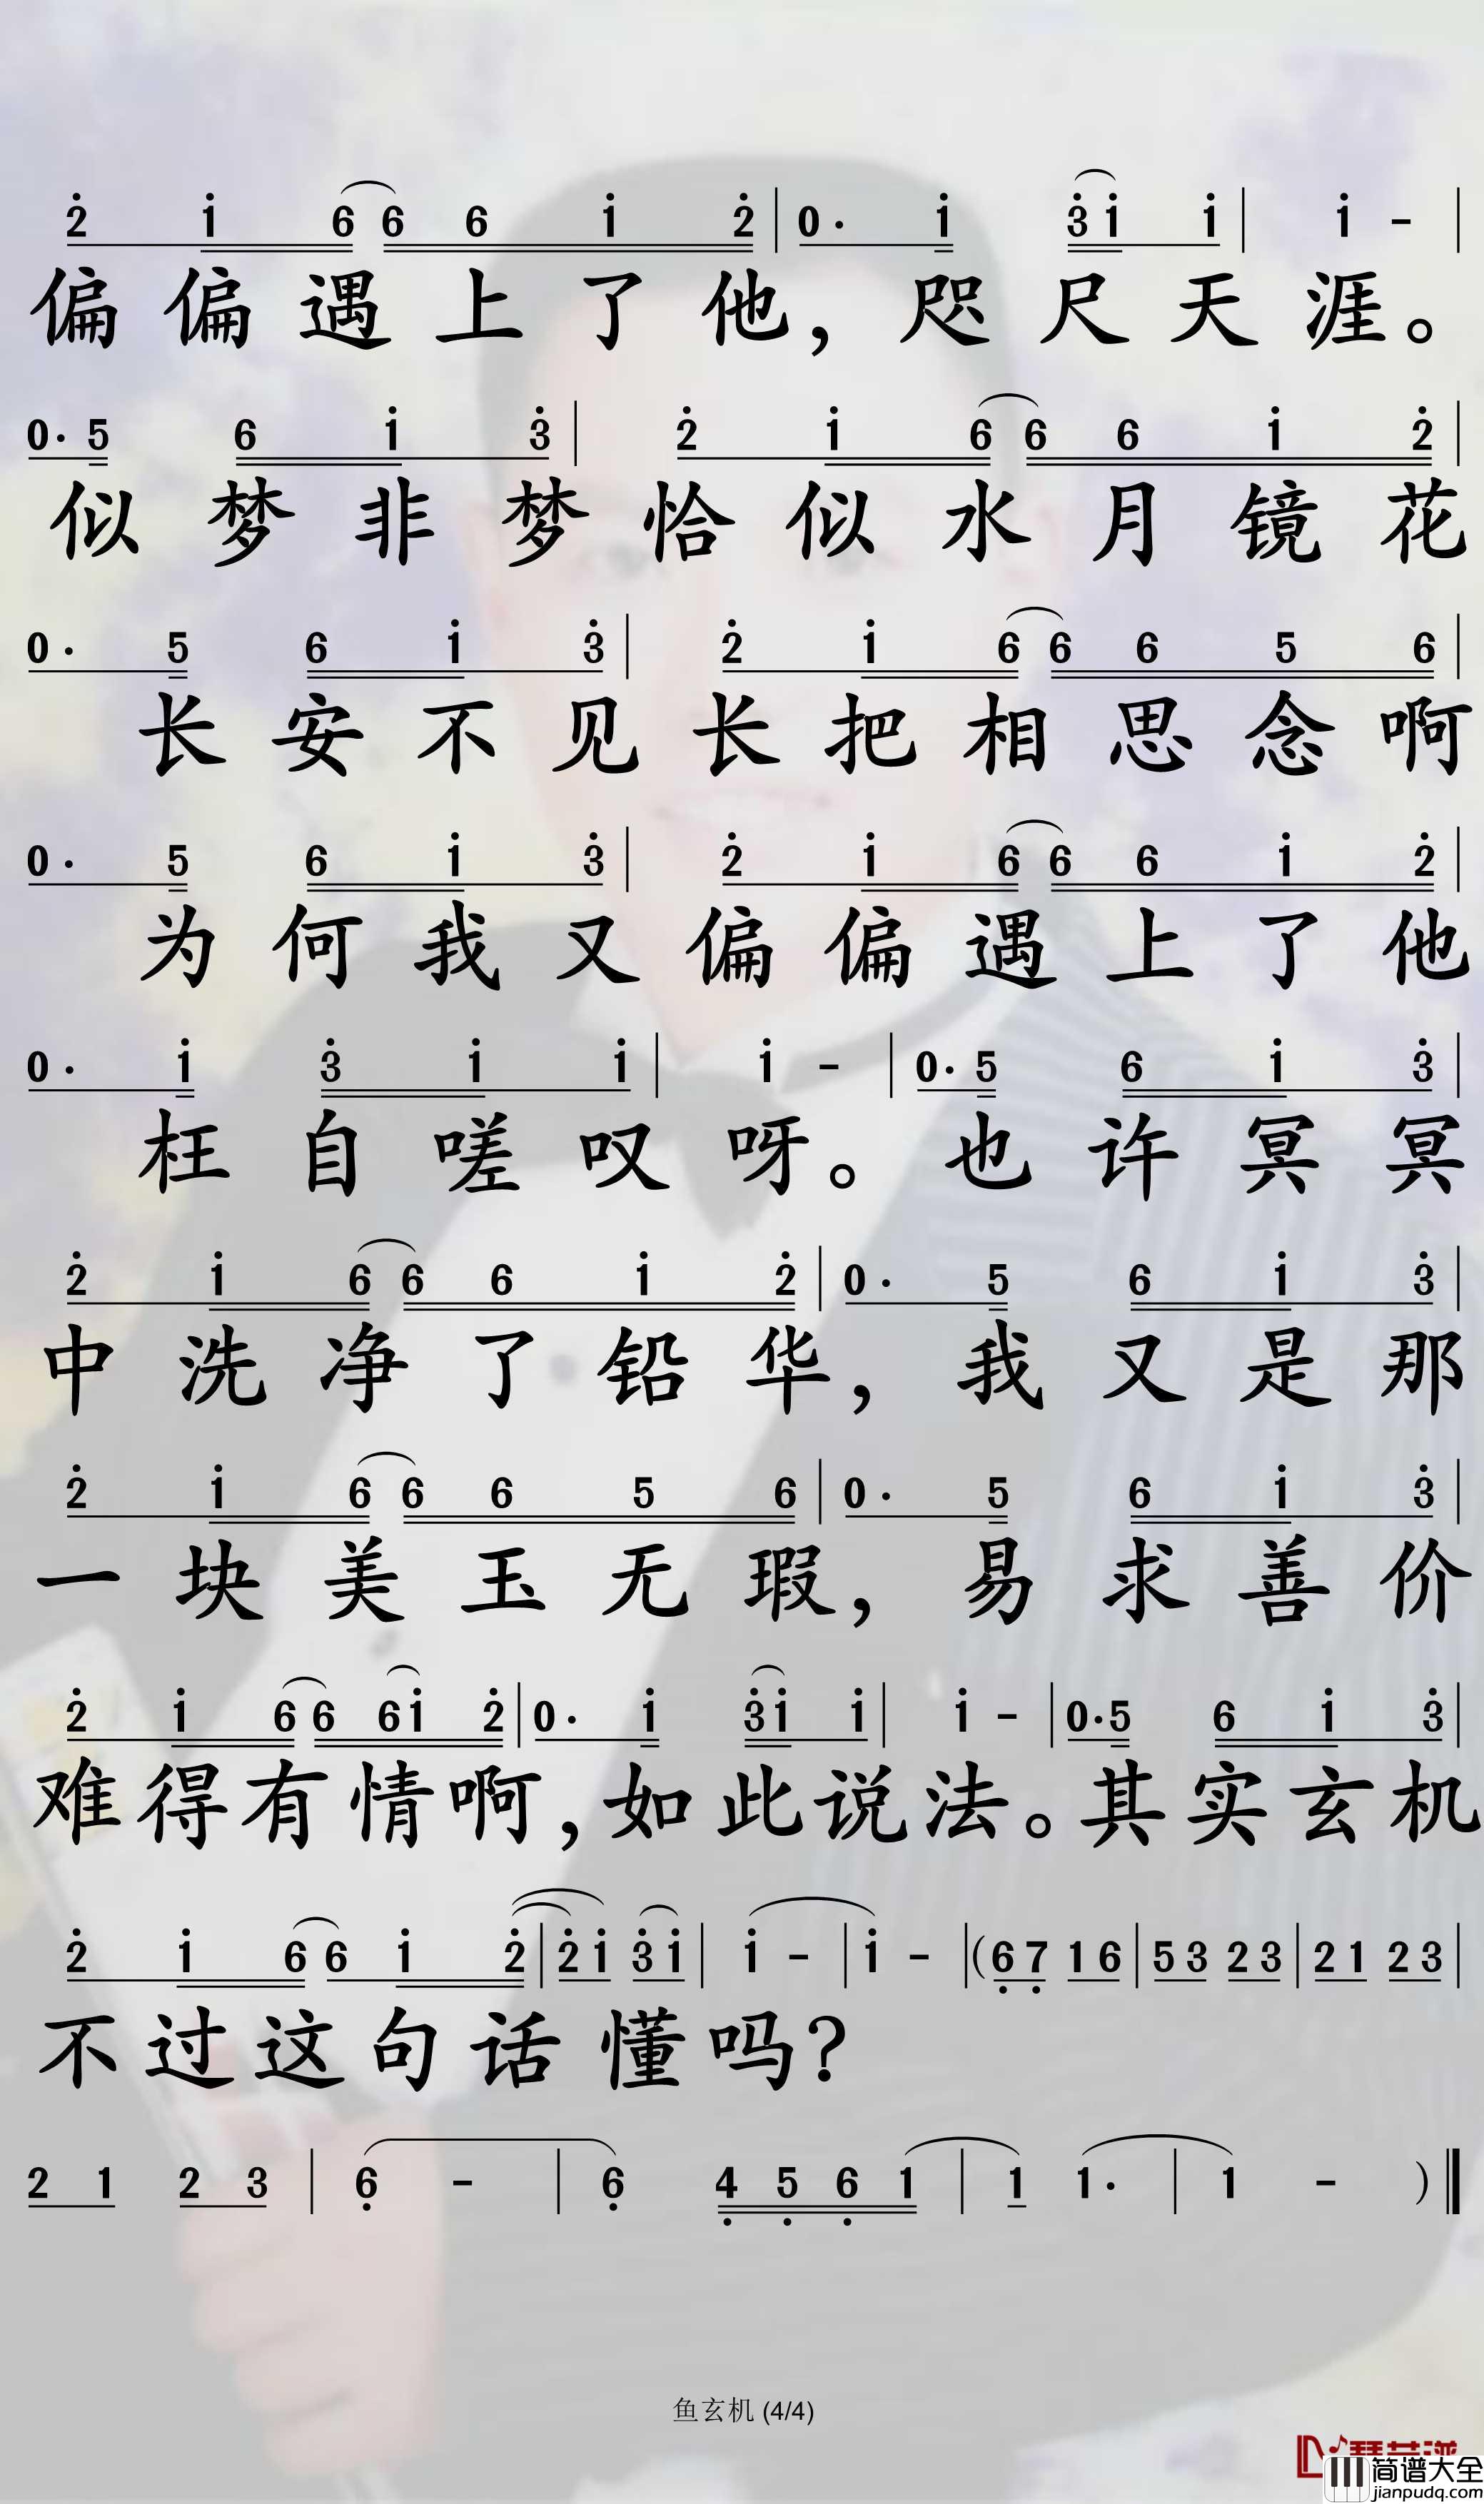 2̇ 1̇ 6 6 6 1̇ 2̇ | 0· 1̇ 3̇ 1̇ 1̇ | 1̇ - |
偏偏遇上了他，咫尺天涯。
0· 5 6 1̇ 3̇ | 2̇ 1̇ 6 6 6 1̇ 2̇ |
似梦非梦恰似水月镜花
0· 5 6 1̇ 3̇ | 2̇ 1̇ 6 6 6 5 6 |
长安不见长把相思念啊
0· 5 6 1̇ 3̇ | 2̇ 1̇ 6 6 6 1̇ 2̇ |
为何我又偏偏遇上了他
0· 1̇ 3̇ 1̇ 1̇ | 1̇ - | 0· 5 6 1̇ 3̇ |
枉自嗟叹呀。也许冥冥
2̇ 1̇ 6 6 6 1̇ 2̇ | 0· 5 6 1̇ 3̇ |
中洗净了铅华，我又是那
2̇ 1̇ 6 6 6 5 6 | 0· 5 6 1̇ 3̇ |
一块美玉无瑕，易求善价
2̇ 1̇ 6 6 6 1̇ 2̇ | 0· 1̇ 3̇ 1̇ 1̇ | 1̇ - | 0· 5 6 1̇ 3̇ |
难得有情啊，如此说法。其实玄机
2̇ 1̇ 6 6 1̇ 2̇ | 2̇ 1̇ 3̇ 1̇ | 1̇ - | 1̇ - | (6̣ 7̣ 1 6 | 5 3 2 3 | 2 1 2 3 |
不过这句话懂吗？
2 1 2 3 | 6̣ - | 6̣ 4̣ 5̣ 6̣ 1 | 1 1· | 1 - )
鱼玄机 (4/4)
简谱大全
jianpudq.com